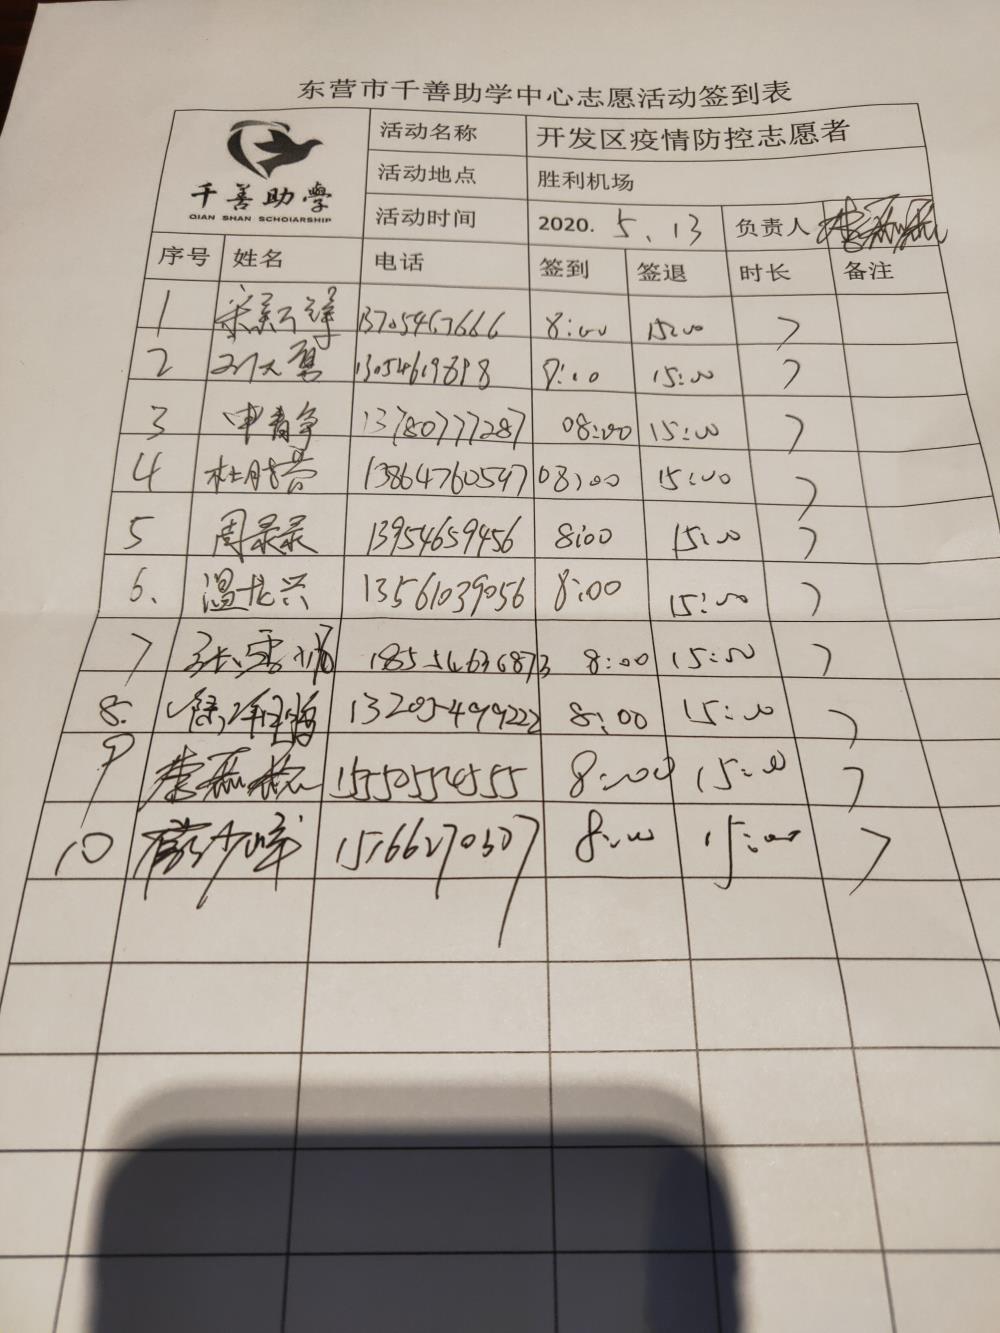 东营市千善助学中心志愿活动签到表
千善助學
QIAN SHAN SCHOlARSHIP
活动名称 开发区疫情防控志愿者
活动地点 胜利机场
活动时间 2020. 5.13 负责人
序号 姓名 电话 签到 签退 时长 备注
1 8:00 15:00 7
2 8:00 15:00 7
3 申青争 13780777287 08:00 15:00 7
4 杜胜营 13864760597 08:00 15:00 7
5 周录录 13954659456 8:00 15:00 7
6. 温龙兴 13561039056 8:00 15:00 7
7 8:00 15:00 7
8. 13205499222 8:00 15:00 7
9 15550554555 8:00 15:00 7
10 15166270307 8:00 15:00 7